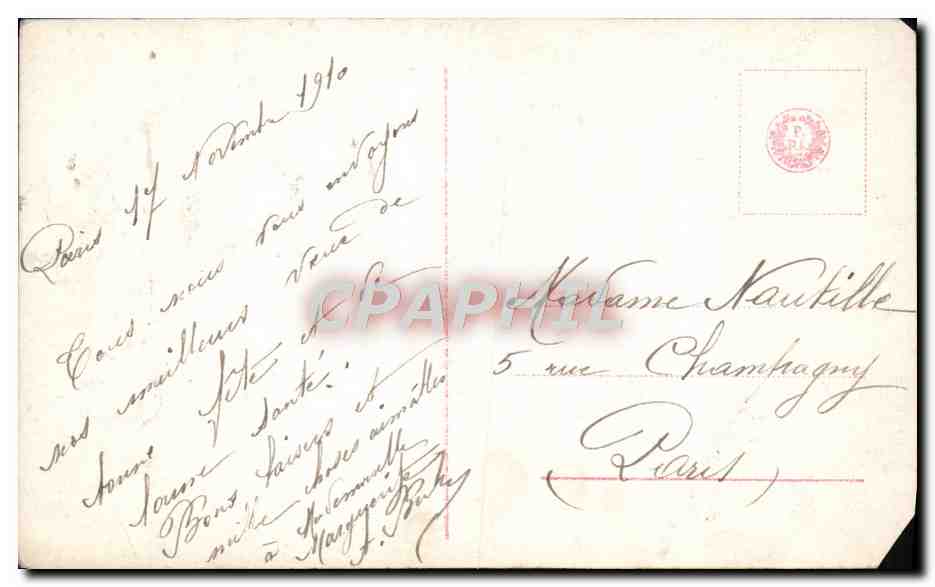 Paris 17 Novembre 1910
Tous nous vous envoyons
nos meilleurs vœux de
bonne fête et de
bonne santé!
Bons baisers et
mille choses aimables
à Mademoiselle
Marguerite
P.
P.I.
CPAPHIL
Madame Nautille
5 rue Champagny
(Paris)